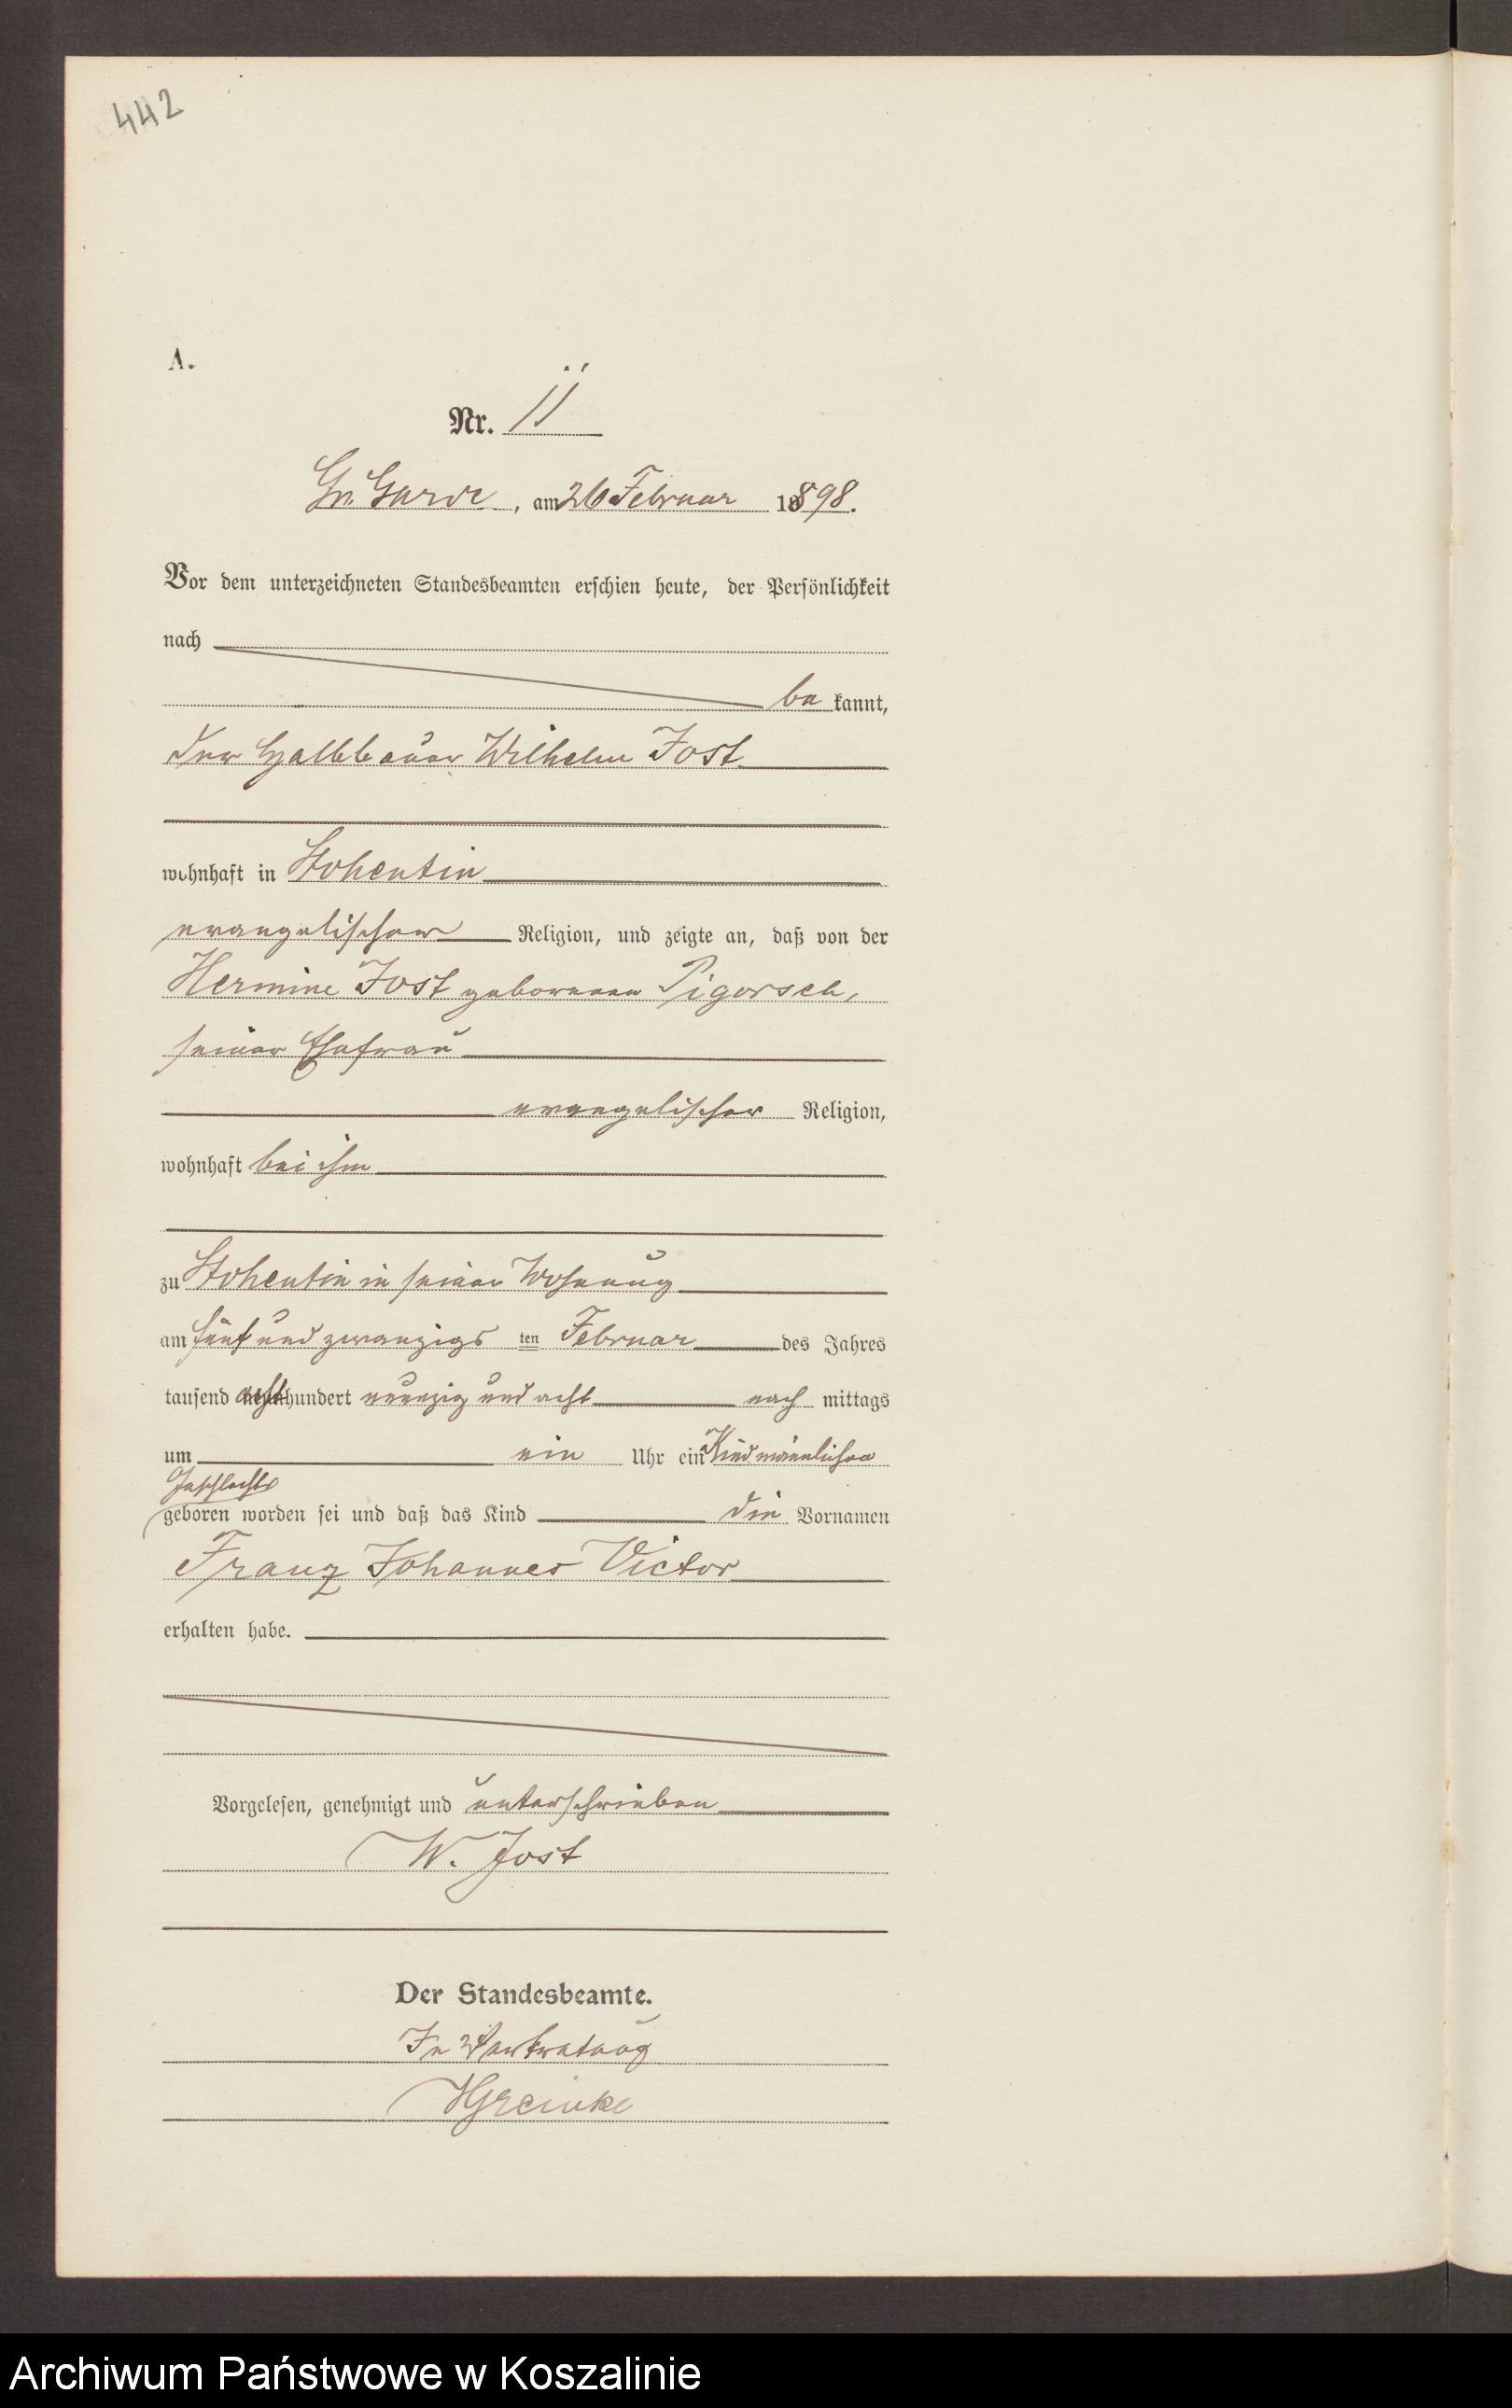 442
A.
Nr. 11
Gr. Garde, am 26 Februar 1898.
Vor dem unterzeichneten Standesbeamten erschien heute, der Persönlichkeit
nach
be kannt,
der Halbbauer Wilhelm Jost
wohnhaft in Stohentin
evangelischer Religion, und zeigte an, daß von der
Hermine Jost geborenen Pigorsch,
seiner Ehefrau
evangelischer Religion,
wohnhaft bei ihm
zu Stohentin in seiner Wohnung
am fünf und zwanzigs ten Februar des Jahres
tausend acht hundert neunzig und acht nach mittags
um ein Uhr ein Kind männlichen
Geschlechts
geboren worden sei und daß das Kind die Vornamen
Franz Johannes Victor
erhalten habe.
Vorgelesen, genehmigt und unterschrieben
W. Jost
Der Standesbeamte.
In Vertretung
Archiwum Państwowe w Koszalinie